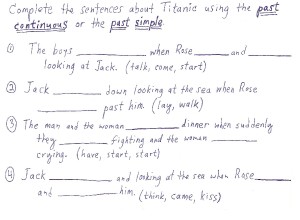 Complete the sentences about Titanic using the past
continuous or the past simple.
① The boys ________ when Rose ____ and ____
looking at Jack. (talk, come, start)
② Jack ________ down looking at the sea when Rose
________ past him. (lay, walk)
③ The man and the woman ________ dinner when suddenly
they ________ fighting and the woman ________
crying. (have, start, start)
④ Jack ________ and looking at the sea when Rose ________
and ________ him. (think, came, kiss)